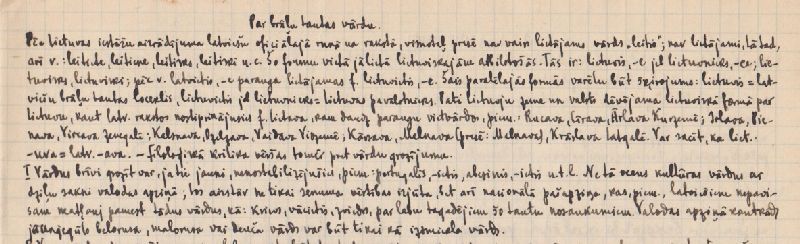 Par brāļu tautas vārdu.
Pēc Lietuvas iestāžu aizrādījuma latviešu oficiālajā runā un rakstā, vismaz presē nav vairs lietājams vārds „leitis"; nav lietājami, tā tad,
arī v.: leitis, leitiene, leitisks, leitiski u.c. Šo formu vietā jālieto lietuviskajām atbilstošās. Tās ir: lietuvis, -e jeb lietuvnieks, -ce; lie-
tuvisks, lietuviski; pēc v. latvietis, -e parauga lietājamas f. lietuvietis, -e. Šais paralēlajās formās varētu būt šķirojums: lietuvis = lat-
viešu brāļu tautas loceklis, lietuvietis jeb lietuvnieks = Lietuvas pavalstnieks. Pati lietuvju zeme un valsts dēvējama lietuviskā formā par
Lietuvu, kaut latv. rakstos nostiprinājusies f. Lietava, kam daudz paraugu vietvārdos, piem.: Rucava, Cīrava, Ārlava Kurzemē; Irlava,
nava, Vircava Zemgalē; Kalsnava, Dzelzava, Vaidava Vidzemē; Kārsava, Malnava (presē: Malnava), Krāslava Latgalē. Var sacīt, ka liet.
-uva = latv. -ava. – Filoloģiskā kritika vēršas tomēr pret vārdu grozījumu.
I Vārdus brīvi grozīt var, ja tie jauni, nenostabilizējušies, piem.: portugālis, -ietis, abesīnis, -ietis u.t.l. Ne tā vecus kultūras vārdus ar
dziļu sakni valodas apziņā; tos aizstāv ne tikai senuma vērtības izjūta, bet arī nacionālā pašapziņa, kas, piem., latviešiem nepavi-
sam neatļauj pamest tādus vārdus, kā: krievs, vācietis, zviedrs, par labu tagadējiem šo tautu nosaukumiem. Valodas apziņā
jaunieguls belorusa, malorusa vai deiča vārds var būt tikai kā vārds.